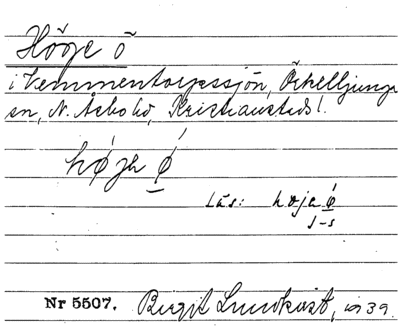 Höge ö
i Vemmentorpssjön, Örkelljunga
sn, N. Åsbo hd, Kristianstads l.
højə ǿ
Läs: høja ǿ
s-s
Nr 5507. Birgit Lundkvist, 1939.